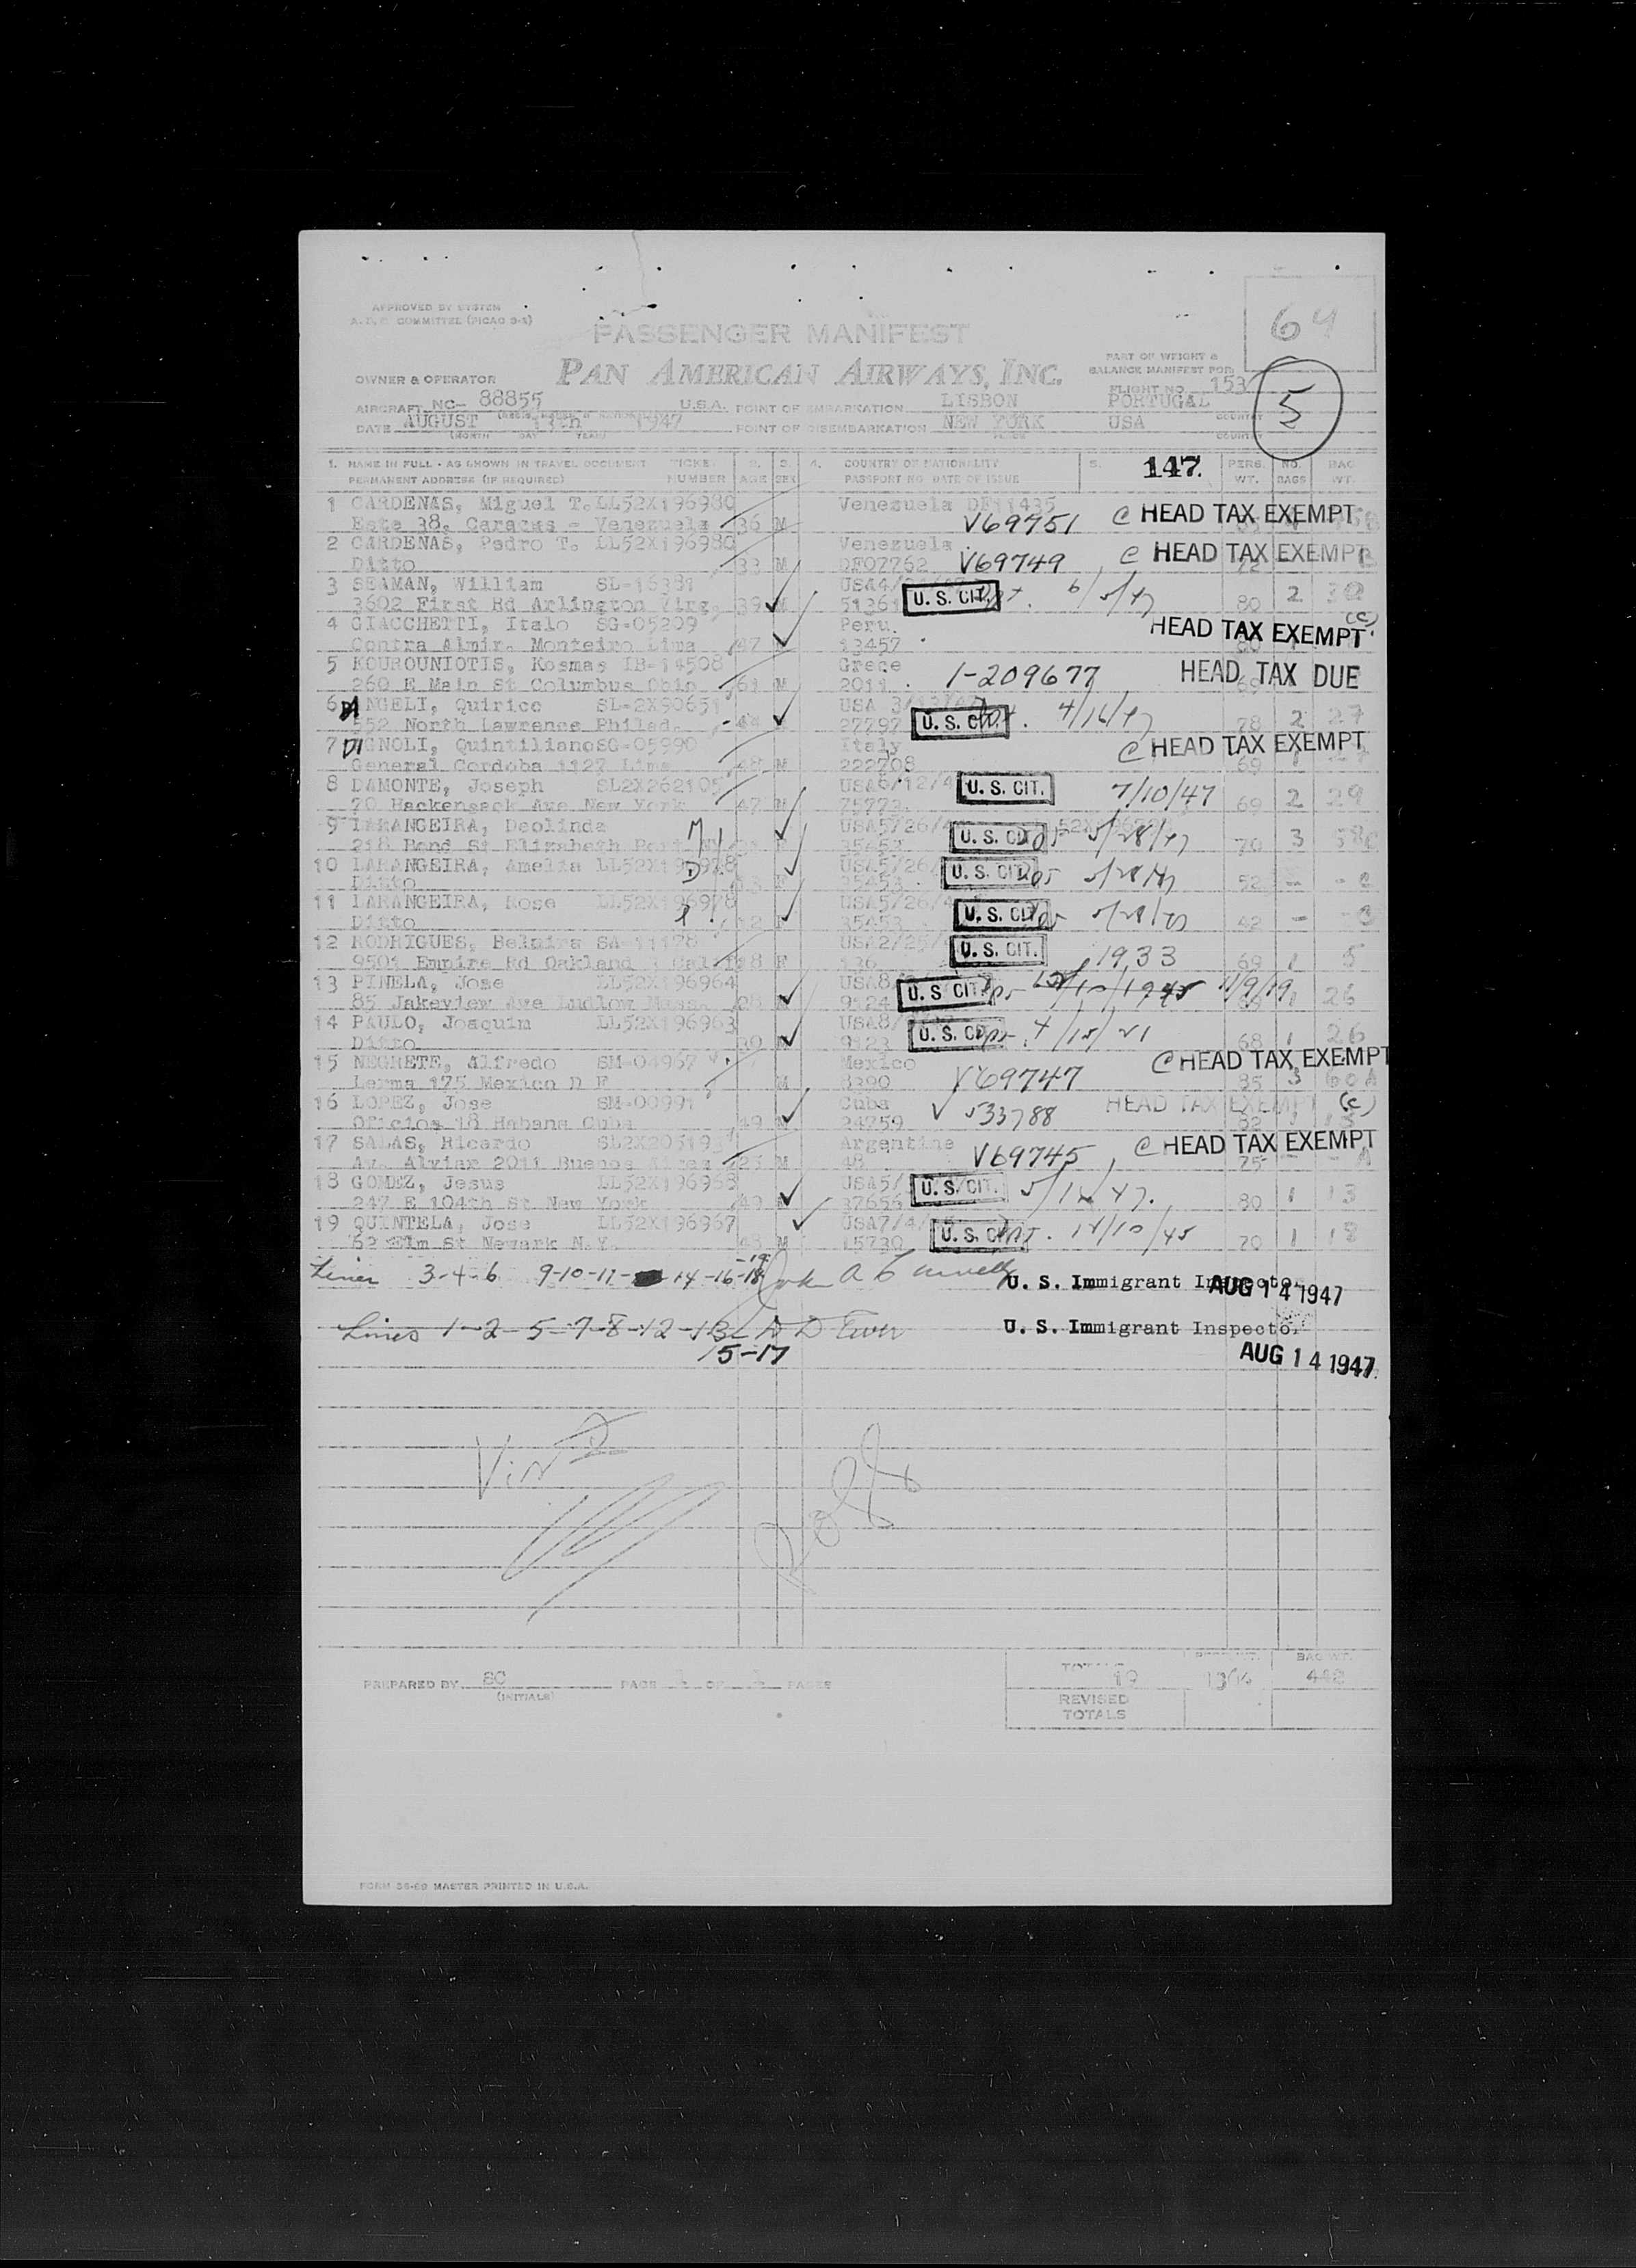 APPROVED BY SYSTEM
A.T.C. COMMITTEE (PICAO 9-2)
64
PASSENGER MANIFEST
PAN AMERICAN AIRWAYS, INC.
PART OF WEIGHT &
BALANCE MANIFEST FOR
OWNER & OPERATOR
FLIGHT NO. 153
5
AIRCRAFT NC- 88855 U.S.A. POINT OF EMBARKATION LISBON PORTUGAL
COUNTRY
DATE AUGUST 13th 1947 POINT OF DISEMBARKATION NEW YORK USA
(MONTH DAY YEAR) PLACE COUNTRY
1. NAME IN FULL - AS SHOWN IN TRAVEL DOCUMENT TICKET 2. 3. 4. COUNTRY OF NATIONALITY 5. 147. PERS. NO. BAG
PERMANENT ADDRESS (IF REQUIRED) NUMBER AGE SEX PASSPORT NO DATE OF ISSUE WT. BAGS WT.
1 CARDENAS, Miguel T. LL52X196980 Venezuela DF11435
Este 38, Caracas - Venezuela 36 M V69751 C HEAD TAX EXEMPT
2 CARDENAS, Pedro T. LL52X196980 Venezuela
Ditto 33 M DF07762 V69749 C HEAD TAX EXEMPT
3 SEAMAN, William SL-16381 USA4/
3602 First Rd Arlington Virg. 39 M 5136 U. S. CIT. 6/5/47 80 2 30
4 GIACCHETTI, Italo SG-05209 Peru. (C)
Contra Almir. Monteiro Lima 47 13457 HEAD TAX EXEMPT
5 KOUROUNIOTIS, Kosmas IB-14508 Grece
260 E Main St Columbus Ohio 61 M 2011 1-209677 HEAD TAX DUE
6 DI ANGELI, Quirico SL-2X90651 USA 3/
552 North Lawrence Philad. 27797 U. S. CIT. 4/16/47 78 2 27
7 DIGNOLI, Quintiliano SG-05990 Italy
General Cordoba 1127 Lima 48 M 222708 C HEAD TAX EXEMPT 69
8 DAMONTE, Joseph SL2X262105 USA6/12/4
70 Hackensack Ave New York 47 M 75773 U. S. CIT. 7/10/47 69 2 29
9 LARANGEIRA, Deolinda M USA5/26/4
218 Bond St Elizabeth Port NJ F 35453 U. S. CIT 5/28/47 70 3 58C
10 LARANGEIRA, Amelia LL52X196978 D USA5/26/
Ditto F 35453 U. S. CIT 5/28/47 52 - - C
11 LARANGEIRA, Rose LL52X196978 USA5/26/4
Ditto 12 F 35453 U. S. CIT 5/28/47 42 - - C
12 RODRIGUES, Belmira SA-11178 USA2/25/
9501 Empire Rd Oakland 3 Cal. F 136 U. S. CIT. 1933 69 1 5
13 PINELA, Jose LL52X196964 USA8/
85 Lakeview Ave Ludlow Mass. 9124 U. S CIT 11/9/19 1 26
14 PAULO, Joaquim LL52X196963 USA8/
Ditto 9123 U. S. CIT 4/15/21 68 1 26
15 NEGRETE, Alfredo SM-04967 Mexico C HEAD TAX EXEMPT
Lerma 175 Mexico D F M 8390 V69747 85 3 60A
16 LOPEZ, Jose SM-00991 Cuba HEAD TAX EXEMPT (C)
Oficios 18 Habana Cuba 49 24759 V 533788 82
17 SALAS, Ricardo SL2X205193 Argentine
Av. Alviar 2011 Buenos Aires 23 M 48 V69745 C HEAD TAX EXEMPT 75 A
18 GOMEZ, Jesus LL52X196968 USA5/
247 E 104th St New York 49 37656 U. S. CIT. 47. 80 1 13
19 QUINTELA, Jose LL52X196967 USA7/4/
62 Elm St Newark N.Y. 48 M 15730 U. S. CIT 12/10/45 70 1 18
Lines 3-4-6 9-10-11- 14-16-18-19 John U. S. Immigrant Inspector AUG 14 1947
Lines 1-2-5-7-8-12-13- U. S. Immigrant Inspector
15-17 AUG 14 1947
PREPARED BY (INITIALS) PAGE 1 OF 1 PAGES
TOTALS 19 442
REVISED
TOTALS
FORM 56-69 MASTER PRINTED IN U.S.A.